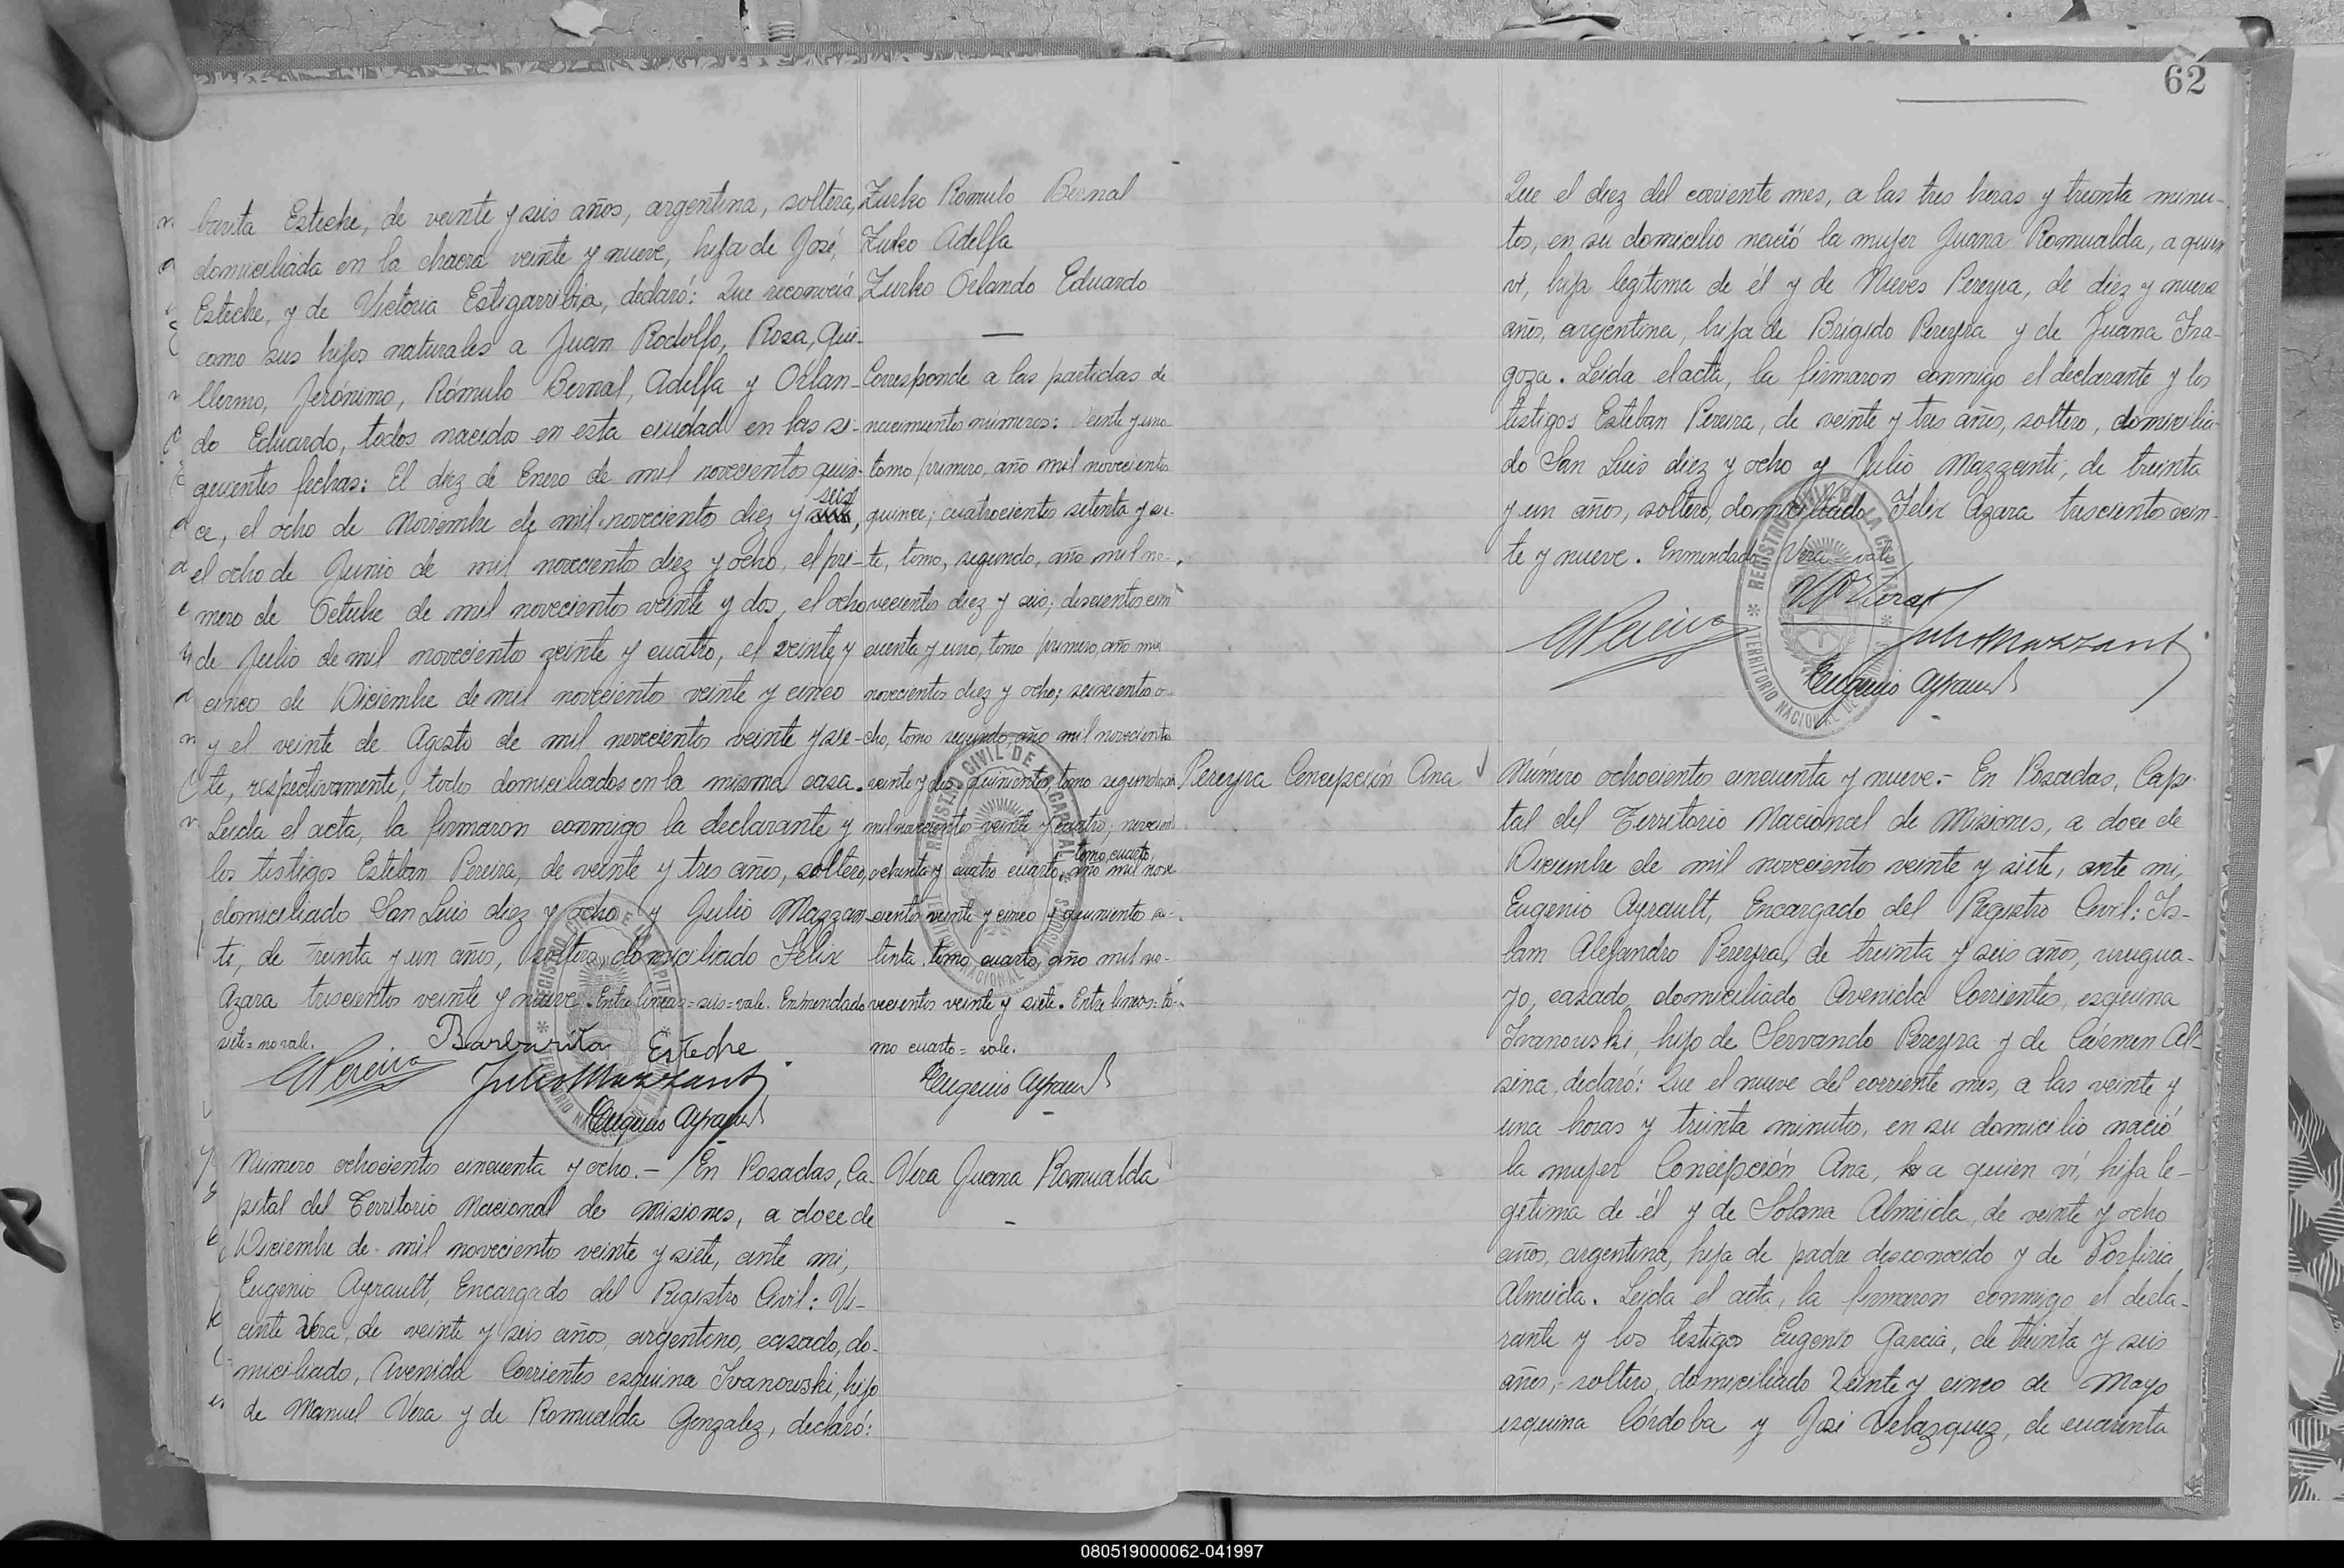 barita Esteche, de veinte y seis años, argentina, soltera,
domiciliada en la chacra veinte y nueve, hija de José
Esteche, y de Victoria Estigarribia, declaró: Que reconocía
como sus hijos naturales a Juan Rodolfo, Rosa, Gui-
llermo, Jerónimo, Rómulo Bernal, Adelfa y Orlan-
do Eduardo, todos nacidos en esta ciudad en las si-
guientes fechas: El diez de Enero de mil novecientos quin-
ce, el ocho de Noviembre de mil novecientos diez y seis siete,
el ocho de Junio de mil novecientos diez y ocho, el pri-
mero de Octubre de mil novecientos veinte y dos, el ocho
de Julio de mil novecientos veinte y cuatro, el veinte y
cinco de Diciembre de mil novecientos veinte y cinco
y el veinte de Agosto de mil novecientos veinte y sie-
te, respectivamente, todos domiciliados en la misma casa.
Leida el acta, la firmaron conmigo la declarante y
los testigos Esteban Pereira, de veinte y tres años, soltero,
domiciliado San Luis diez y ocho y Julio Mazzan-
ti, de treinta y un años, soltero, domiciliado Félix
Azara trescientos veinte y nueve. Entre lineas = seis = vale. Enmendado
siete = no vale.
Barbarita Esteche
EPereira
Julio Mazzanti
Eugenio Ayrault
Zurko Romulo Bernal
Zurko Adelfa
Zurko Orlando Eduardo
Corresponde a las partidas de
nacimientos números: Veinte y uno
tomo primero, año mil novecientos
quince; cuatrocientos setenta y sie-
te, tomo, segundo, año mil no-
vecientos diez y seis; doscientos cin
cuenta y uno, tomo primero, año mil
novecientos diez y ocho; seiscientos o-
cho, tomo segundo, año mil novecientos
veinte y dos; quinientos, tomo segundo, año
mil novecientos veinte y cuatro; novecient
ochenta y cuatro cuarto, tomo, cuarto, año mil nove
cientos veinte y cinco y quinientos se-
tenta, tomo cuarto, año mil no-
vecientos veinte y siete. Entre lineas = to-
mo cuarto = vale.
Eugenio Ayrault
Número ochocientos cincuenta y ocho. - En Posadas, Ca-
pital del Territorio Nacional de Misiones, a doce de
Diciembre de mil novecientos veinte y siete, ante mi,
Eugenio Ayrault, Encargado del Registro Civil: Vi-
cente Vera, de veinte y seis años, argentino, casado, do-
miciliado, Avenida Corrientes esquina Ivanowski, hijo
de Manuel Vera y de Romualda Gonzalez, declaró:
Vera Juana Romualda
62
Que el diez del corriente mes, a las tres horas y treinta minu-
tos, en su domicilio nació la mujer Juana Romualda, a quien
vi, hija legitima de él y de Nieves Pereyra, de diez y nueve
años, argentina, hija de Brígido Pereyra y de Juana Fra-
goza. Leida el acta, la firmaron conmigo el declarante y los
testigos Esteban Pereira, de veinte y tres años, soltero, domicilia-
do San Luis diez y ocho y Julio Mazzanti, de treinta
y un años, soltero, domiciliado Felix Azara trescientos vein-
te y nueve. Enmendado Vera = vale
EPereira
Julio Mazzanti
Eugenio Ayrault
REGISTRO CIVIL DE LA CAPITAL
TERRITORIO NACIONAL DE MISIONES
Pereyra Concepción Ana
Número ochocientos cincuenta y nueve. - En Posadas, Capi-
tal del Territorio Nacional de Misiones, a doce de
Diciembre de mil novecientos veinte y siete, ante mi,
Eugenio Ayrault, Encargado del Registro Civil:
Alejandro Pereyra, de treinta y seis años, urugua-
yo, casado, domiciliado Avenida Corrientes, esquina
Ivanowski, hijo de Servando Pereyra y de Cármen Al-
sina, declaró: Que el nueve del corriente mes, a las veinte y
una horas y treinta minutos, en su domicilio nació
la mujer Concepción Ana, a quien ví, hija le-
gitima de él y de Solana Almeida, de veinte y ocho
años, argentina, hija de padre desconocido y de Porfiria
Almeida. Leida el acta, la firmaron conmigo el decla-
rante y los testigos Eugenio Garcia, de treinta y seis
años, soltero, domiciliado Veinte y cinco de Mayo
esquina Córdoba y José Velazquez, de cuarenta
080519000062-041997